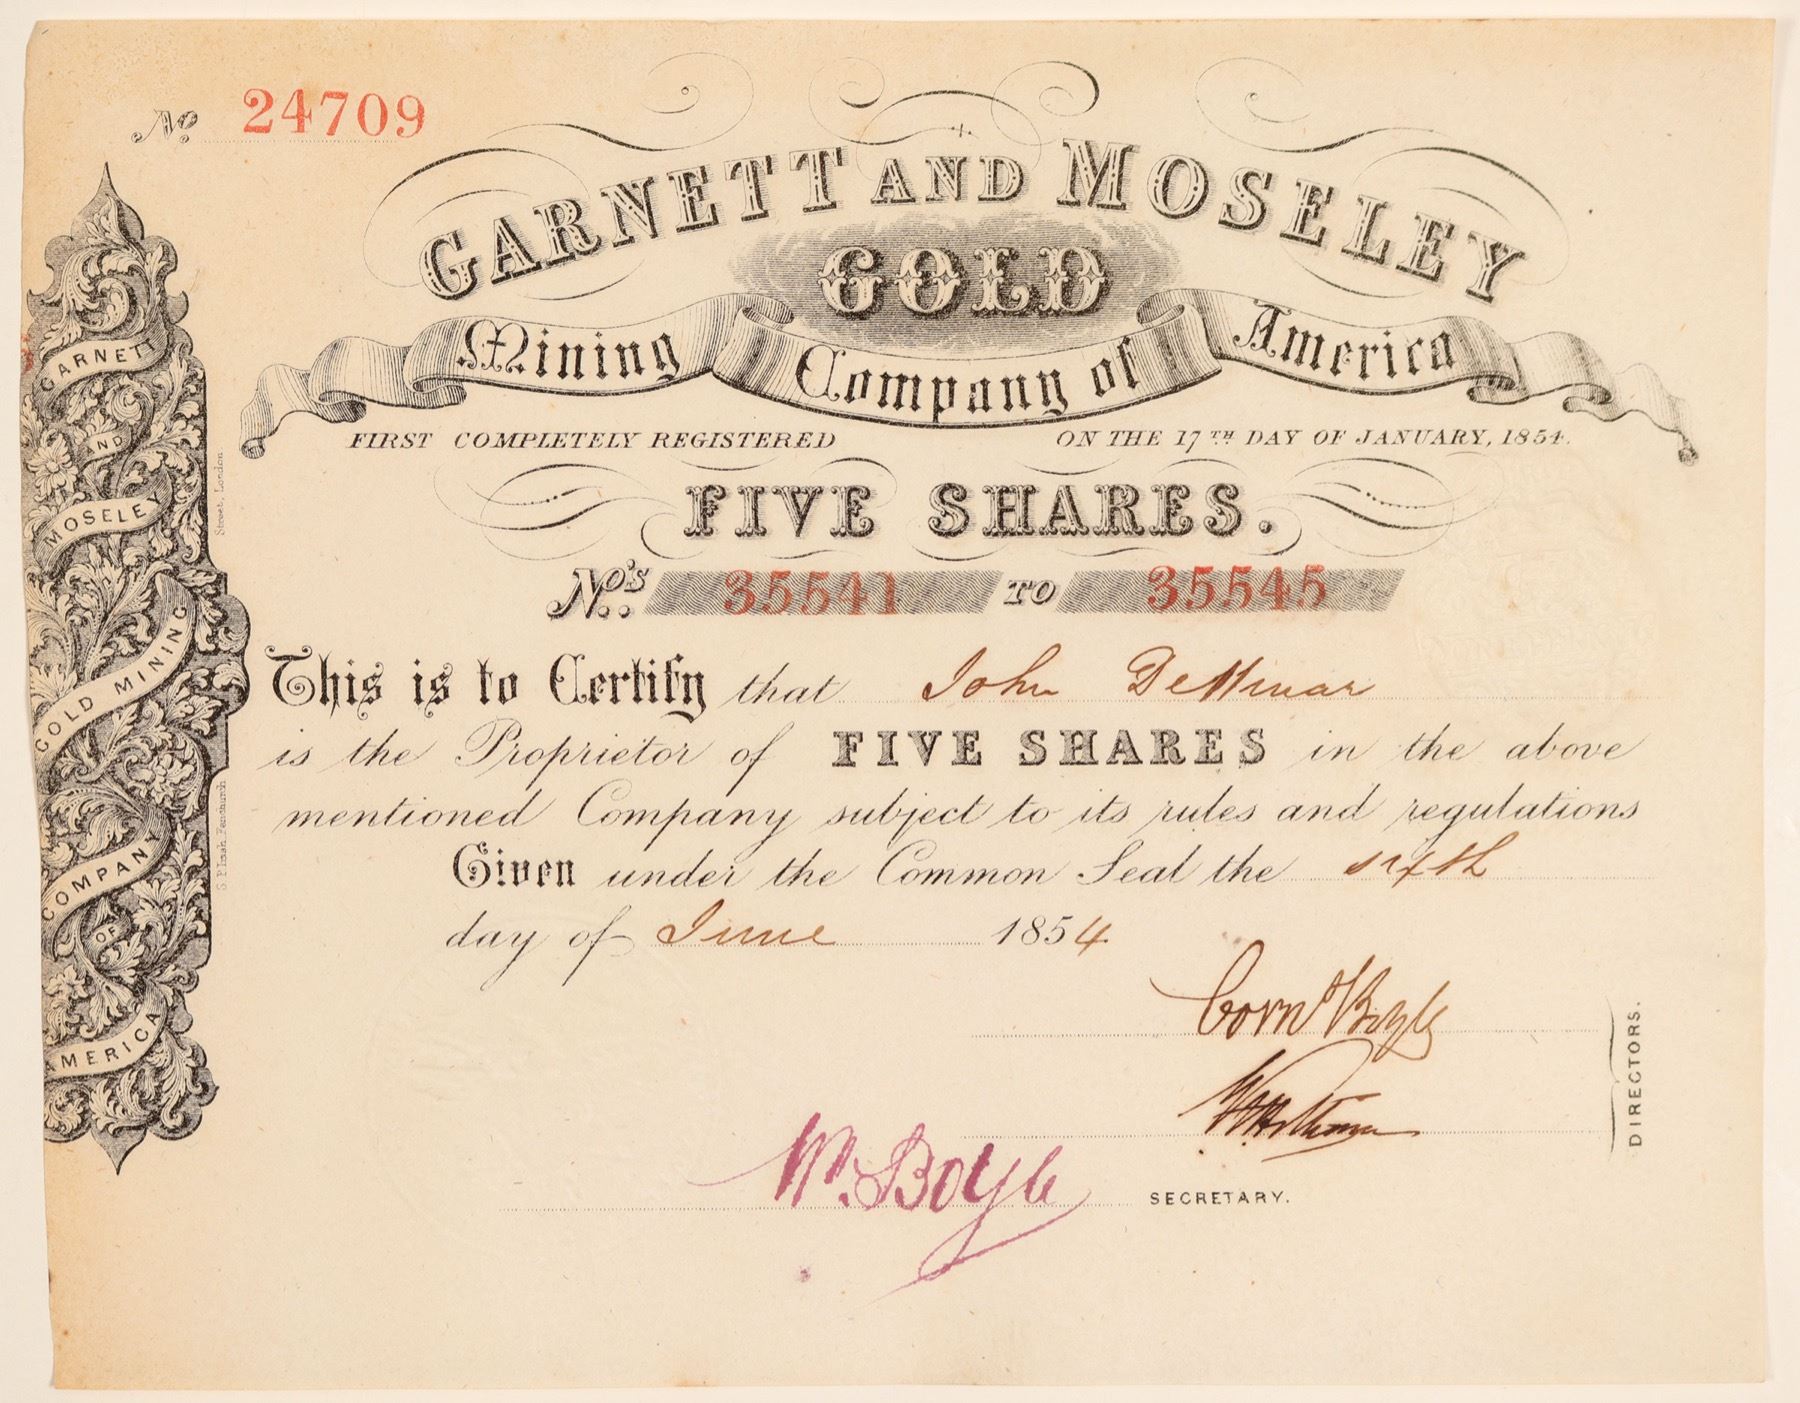 No. 24709
GARNETT AND MOSELEY
GOLD
Mining Company of America
FIRST COMPLETELY REGISTERED ON THE 17TH DAY OF JANUARY, 1854.
FIVE SHARES.
No's. 35541 TO 35545
This is to Certify that John
is the Proprietor of FIVE SHARES in the above
mentioned Company subject to its rules and regulations
Given under the Common Seal the sixth
day of June 1854
Cornd Boyle
DIRECTORS.
Wm. Boyle SECRETARY.
GARNETT
AND
MOSELEY
GOLD MINING
COMPANY
OF
AMERICA
Street, London